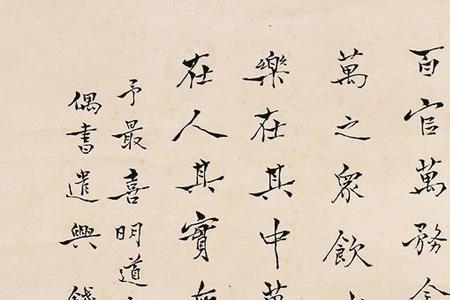 百官萬務金
萬之眾飲水
樂在其中萬
在人其實無
予最喜明道
偶書遣興錢